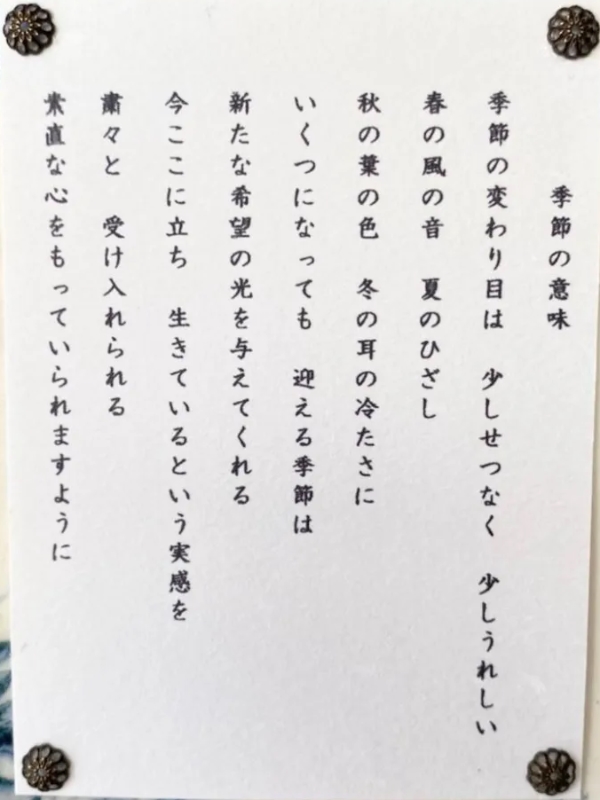 季節の意味
季節の変わり目は　少しせつなく　少しうれしい
春の風の音　夏のひざし
秋の葉の色　冬の耳の冷たさに
いくつになっても　迎える季節は
新たな希望の光を与えてくれる
今ここに立ち　生きているという実感を
粛々と　受け入れられる
素直な心をもっていられますように